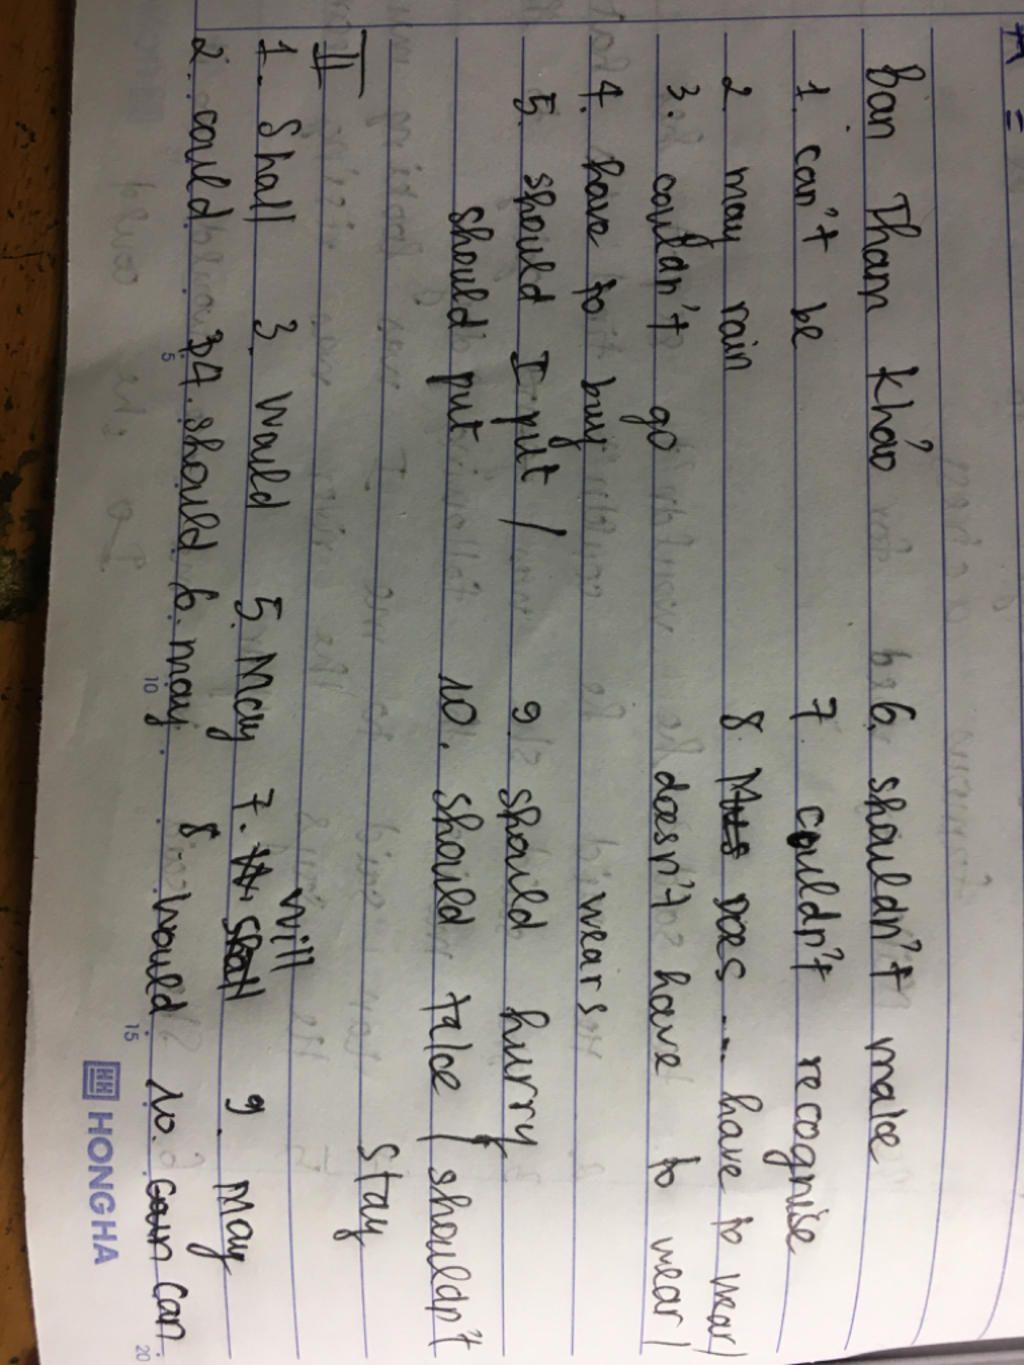 Ban Tham Khảo 6. shouldn't make
1. can't be 7. couldn't recognise
2. may rain 8. Does ... have to wear /
3. couldn't go doesn't have to wear /
4. have to buy wears
5. should I put / 9. should hurry
should put 10. should take / shouldn't
stay
II
1. Shall 3. would 5. May 7. will 9. May
2. could 4. should 6. may 8. would 10. can
5 10 15 20
HONGHA